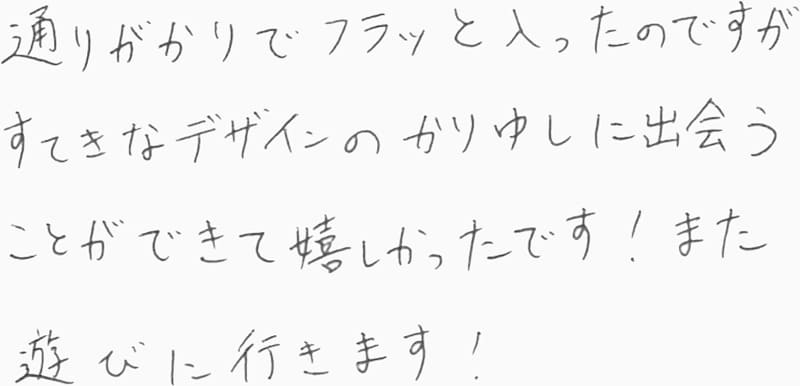 通りがかりでフラッと入ったのですが
すてきなデザインのかりゆしに出会う
ことができて嬉しかったです！また
遊びに行きます！